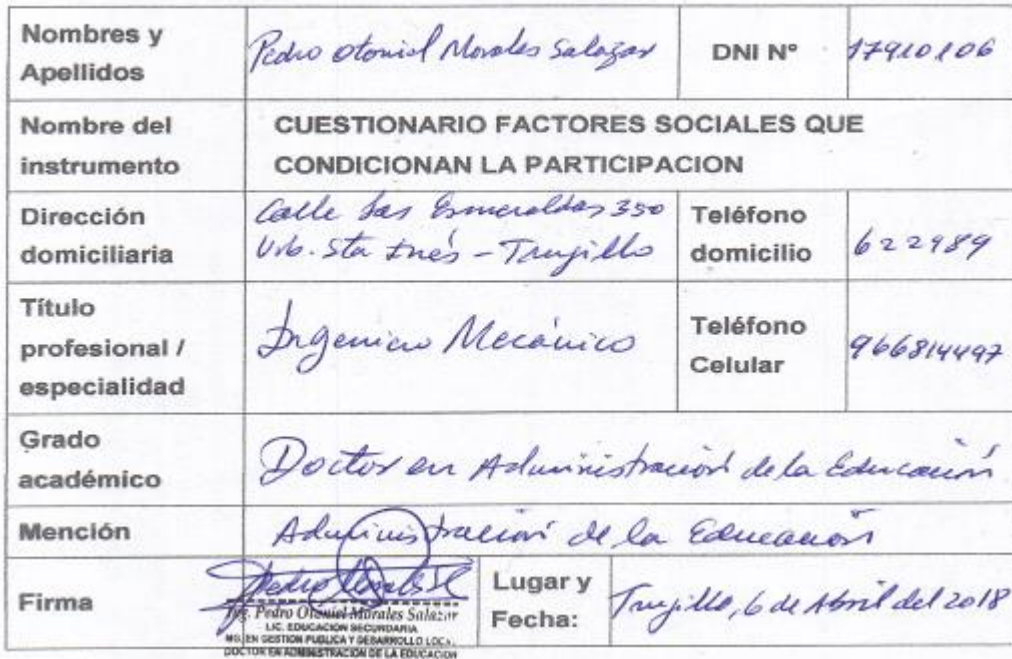 Nombres y
Apellidos
Pedro Otoniel Morales Salazar
DNI Nº
17910106
Nombre del
instrumento
CUESTIONARIO FACTORES SOCIALES QUE
CONDICIONAN LA PARTICIPACION
Dirección
domiciliaria
Calle Las Esmeraldas 350
Urb. Sta Inés - Trujillo
Teléfono
domicilio
622989
Título
profesional /
especialidad
Ingeniero Mecánico
Teléfono
Celular
966814497
Grado
académico
Doctor en Administración de la Educación
Mención
Administración de la Educación
Firma
Pedro Otoniel Morales Salazar
LIC. EDUCACIÓN SECUNDARIA
MG. EN GESTION PUBLICA Y DESARROLLO LOCAL
DOCTOR EN ADMINISTRACIÓN DE LA EDUCACION
Lugar y
Fecha:
Trujillo, 6 de Abril del 2018